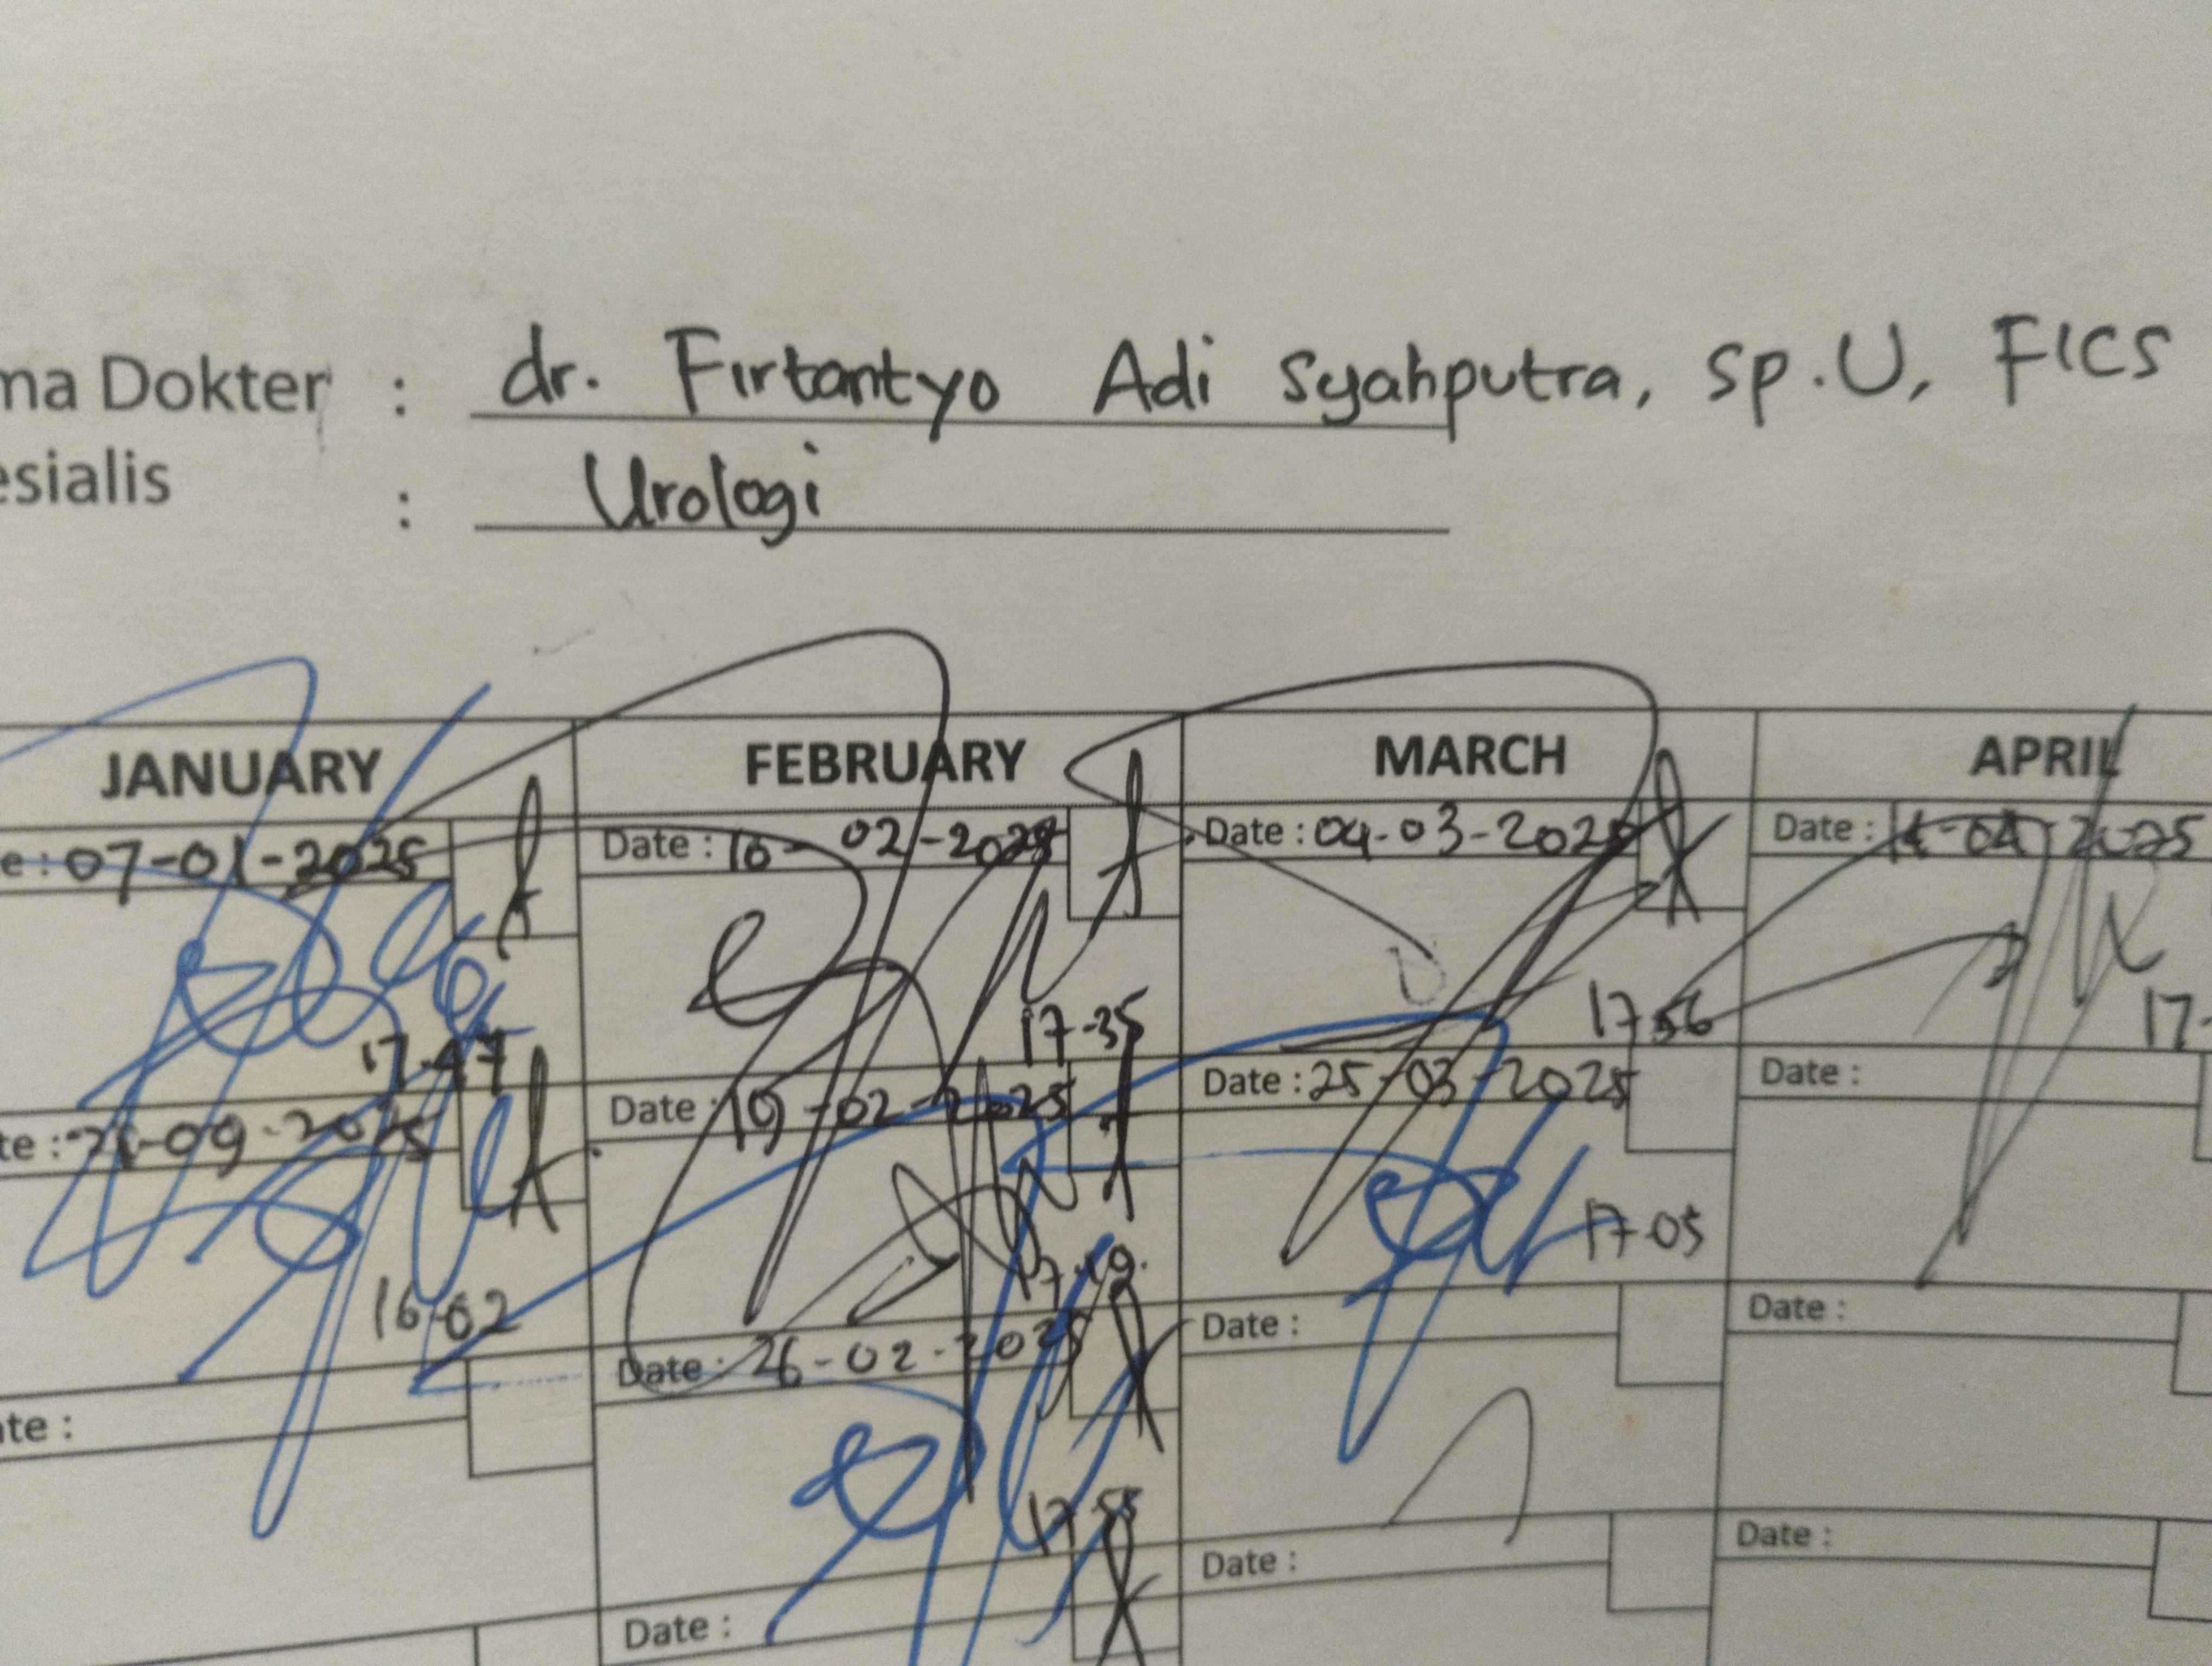 ma Dokter : dr. Firtantyo Adi Syahputra, Sp.U, FICS
esialis : Urologi
JANUARY FEBRUARY MARCH APRIL
e : 07-01-2025 Date : 10- 02-2025 Date : 04-03-2025 Date : -04-2025
17-47 17-35 17 56 17-
te : -09-2025 Date : 19-02-2025 Date : 25-03-2025 Date :
16-02 17-19. 17-05
ate : Date : 26-02-2025 Date : Date :
17 55
Date : Date : Date :